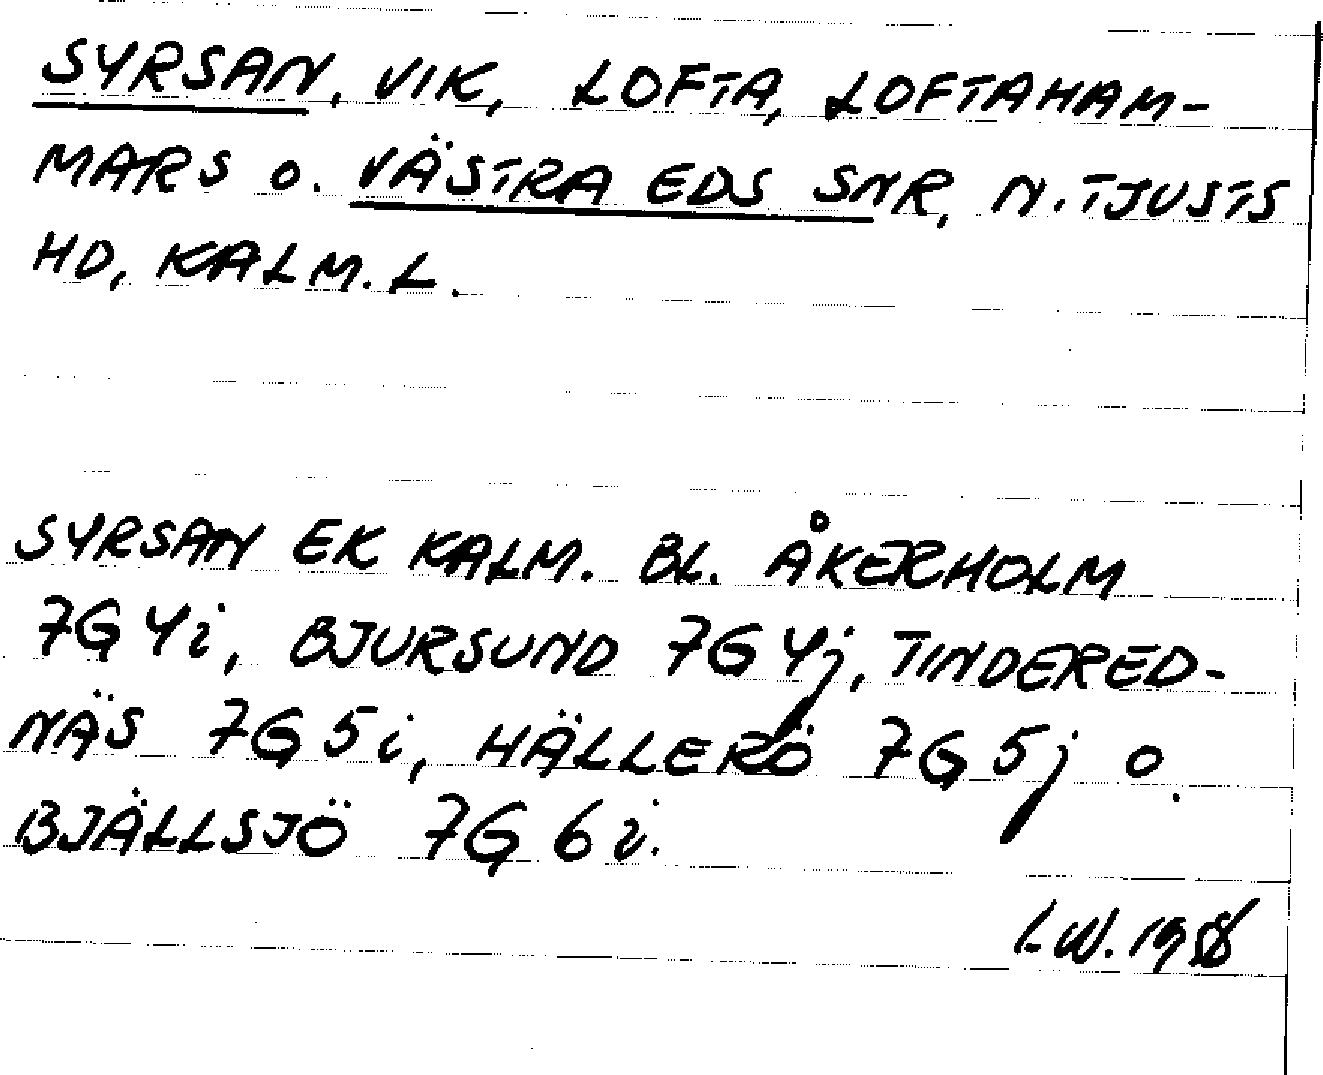 SYRSAN, VIK, LOFTA, LOFTAHAM-
MARS o. VÄSTRA EDS SNR, N. TJUSTS
HD, KALM. L.
SYRSAN EK KALM. BL. ÅKERHOLM
7G 4i, BJURSUND 7G 4j, TINDERED-
NÄS 7G 5i, HÄLLERÖ 7G 5j o.
BJÄLLSJÖ 7G 6i.
L W.